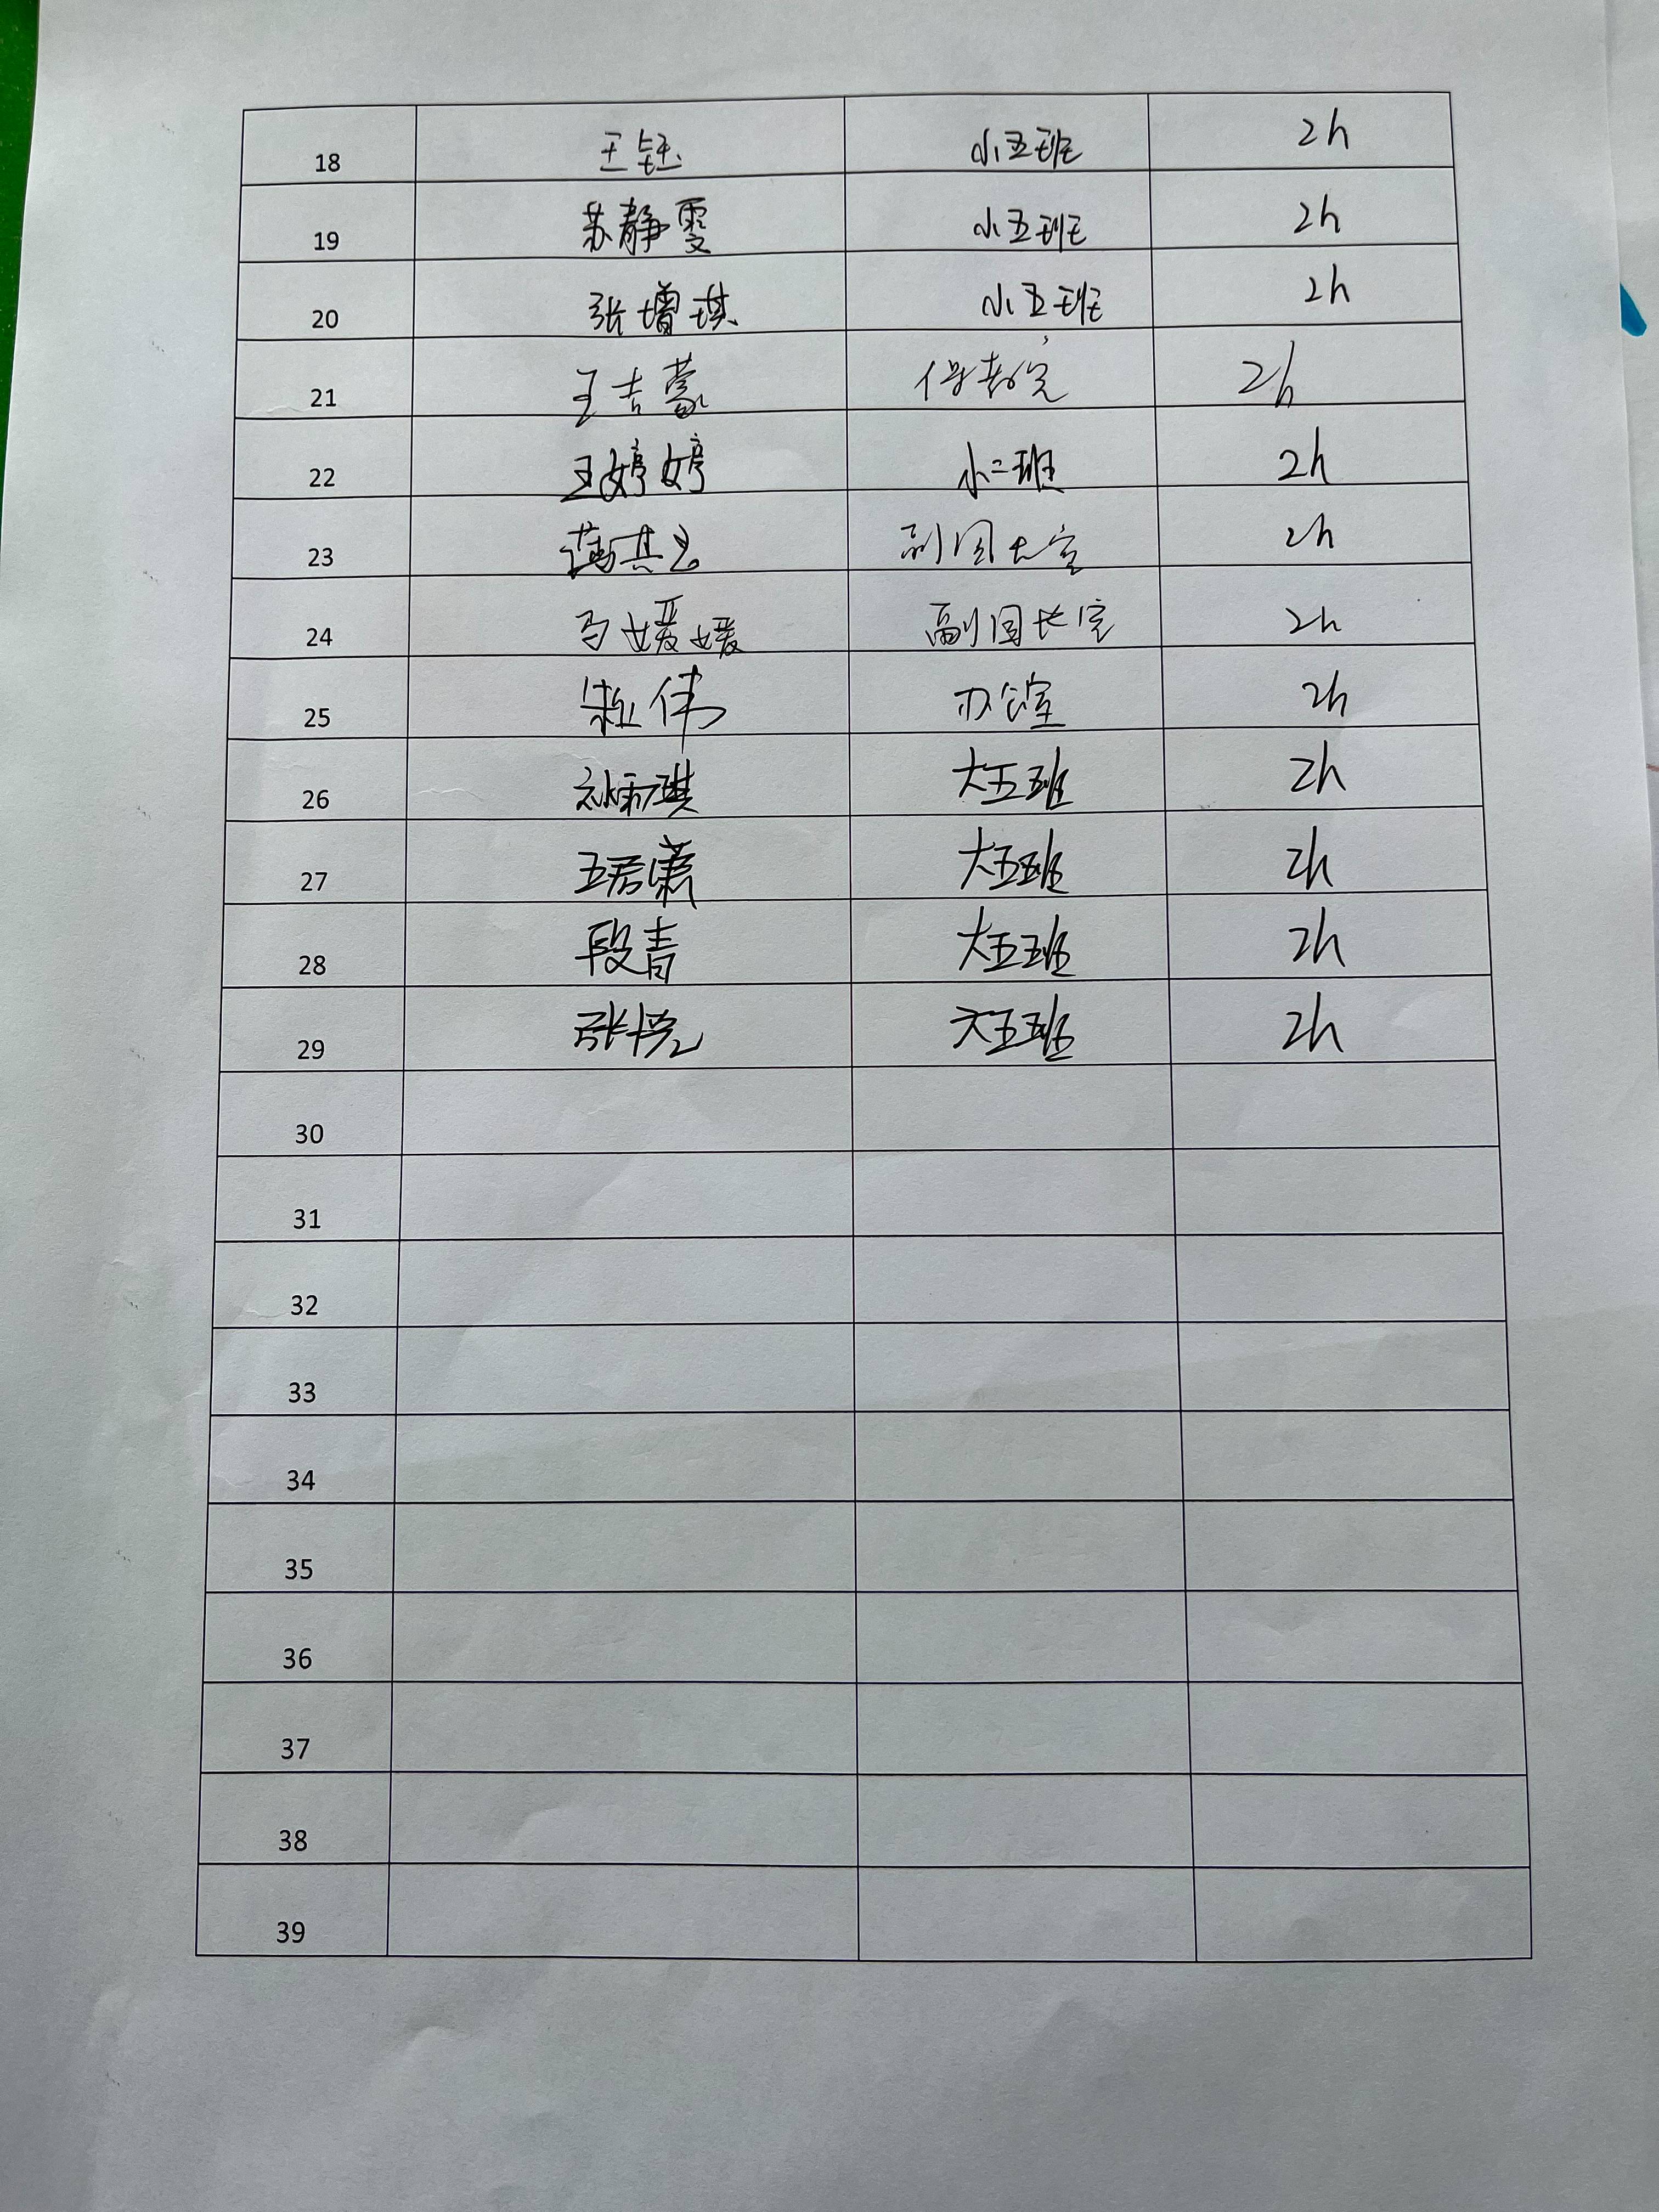 18 王钰 小五班 2h
19 苏静雯 小五班 2h
20 张增琪 小五班 2h
21 王吉蒙 保教室 2h
22 王婷婷 小二班 2h
23 副园长室 2h
24 马媛媛 副园长室 2h
25 伟 办公室 2h
26 大五班 2h
27 王君潇 大五班 2h
28 段青 大五班 2h
29 张悦 大五班 2h
30
31
32
33
34
35
36
37
38
39